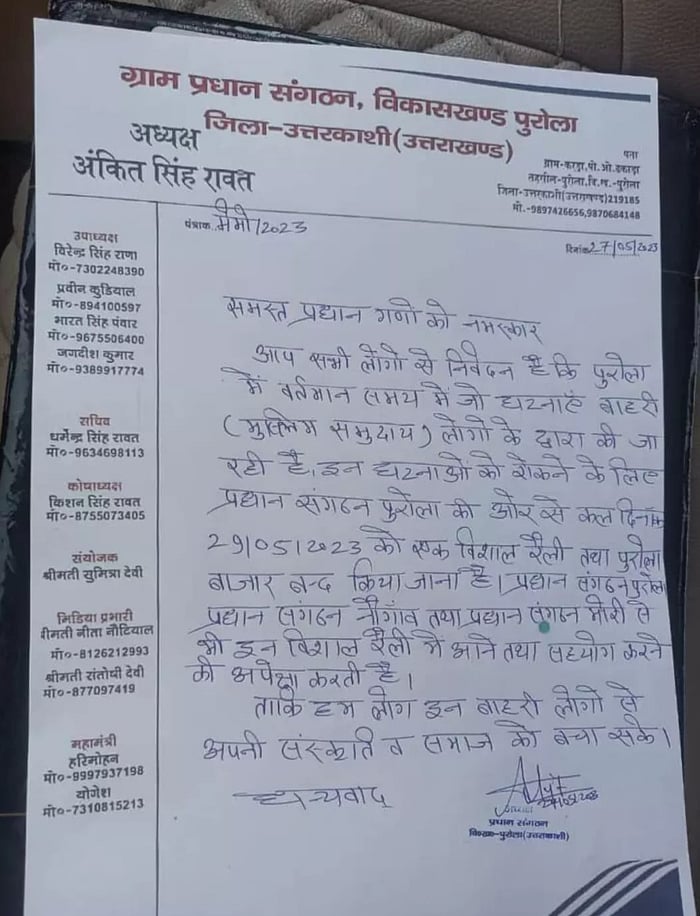 ग्राम प्रधान संगठन, विकासखण्ड पुरोला
जिला-उत्तरकाशी(उत्तराखण्ड)
अध्यक्ष
अंकित सिंह रावत
पता
ग्राम-करड़ा,पो.ओ.ढकाड़ा
तहसील-पुरोला,वि.ख.-पुरोला
जिला-उत्तरकाशी(उत्तराखण्ड)219185
मो.-9897426656,9870684148
पंत्राक..मेमो/2023
दिनांक27/05/2023
उपाध्यक्ष
विरेन्द्र सिंह राणा
मॉ०-7302248390
प्रवीन कुडियाल
मॉ०-894100597
भारत सिंह पंवार
मॉ०-9675506400
जगदीश कुमार
मॉ०-9389917774
सचिव
धर्मेन्द्र सिंह रावत
मॉ०-9634698113
कोषाध्यक्ष
किशन सिंह रावत
मॉ०-8755073405
संयोजक
श्रीमती सुमित्रा देवी
मिडिया प्रभारी
श्रीमती नीता नौटियाल
मॉ०-8126212993
श्रीमती संतोषी देवी
मॉ०-877097419
महामंत्री
हरिमोहन
मॉ०-9997937198
योगेश
मॉ०-7310815213
समस्त प्रधान गणो को नमस्कार
आप सभी लोगो से निवेदन है कि पुरोला
में वर्तमान समय में जो घटनाएं बाहरी
(मुस्लिम समुदाय) लोगो के द्वारा की जा
रही है, इन घटनाओ को रोकने के लिए
प्रधान संगठन पुरोला की ओर से कल दिनांक
29/05/2023 को एक विशाल रैली तथा पुरोला
बाजार बन्द किया जाना है। प्रधान संगठन पुरोला
प्रधान संगठन नौगाँव तथा प्रधान संगठन मोरी से
भी इन विशाल रैली में आने तथा सहयोग करने
की अपेक्षा करती है।
ताकि हम लोग इन बाहरी लोगो से
अपनी संस्कृति व समाज को बचा सके।
धन्यवाद
प्रधान संगठन
वि०ख०-पुरोला(उत्तरकाशी)